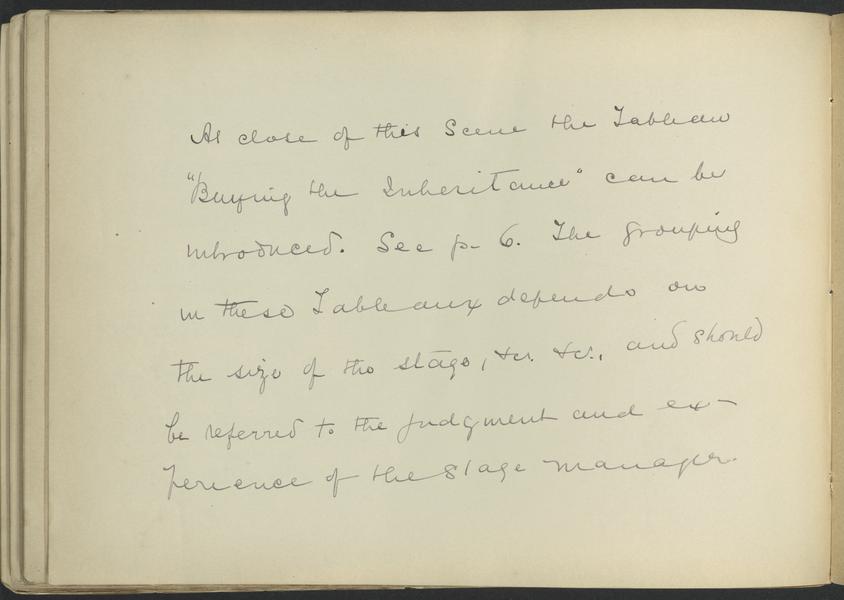 At close of this Scene the Tableau
"Buying the Inheritance" can be
introduced. See p- 6. The grouping
in these Tableaux depends on
the size of the stage, &c. &c., and should
be referred to the judgment and ex-
perience of the Stage manager.